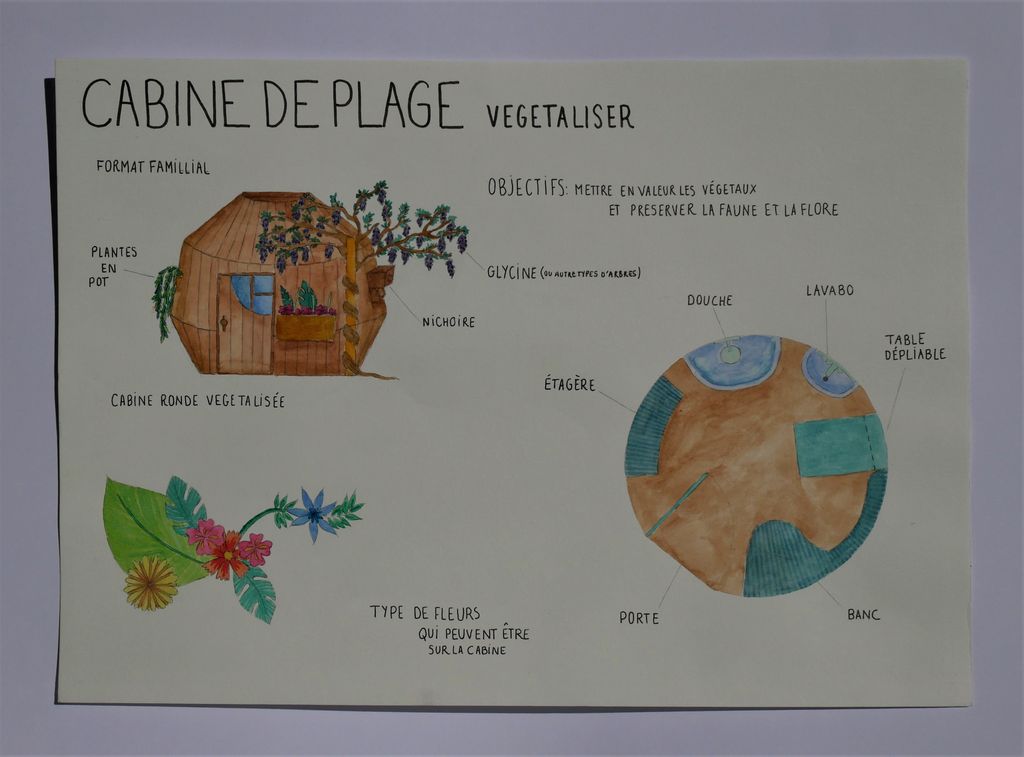 CABINE DE PLAGE VEGETALISER
FORMAT FAMILLIAL
OBJECTIFS: METTRE EN VALEUR LES VÉGETAUX
ET PRESERVER LA FAUNE ET LA FLORE
PLANTES
EN
POT
GLYCINE (OU AUTRE TYPES D'ARBRES)
NICHOIRE
CABINE RONDE VEGETALISÉE
DOUCHE
LAVABO
TABLE
DÉPLIABLE
ÉTAGÈRE
PORTE
BANC
TYPE DE FLEURS
QUI PEUVENT ÊTRE
SUR LA CABINE